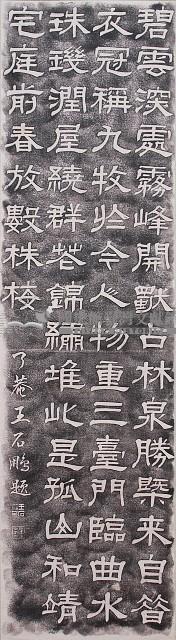 碧雲深處霧峰開占林泉勝槩来自昔
衣冠稱九牧於今人物重三臺門臨曲水
珠璣潤屋繞群花錦繡堆此是孤山和靖
宅庭前春放數株梅
了菴王石鵬題